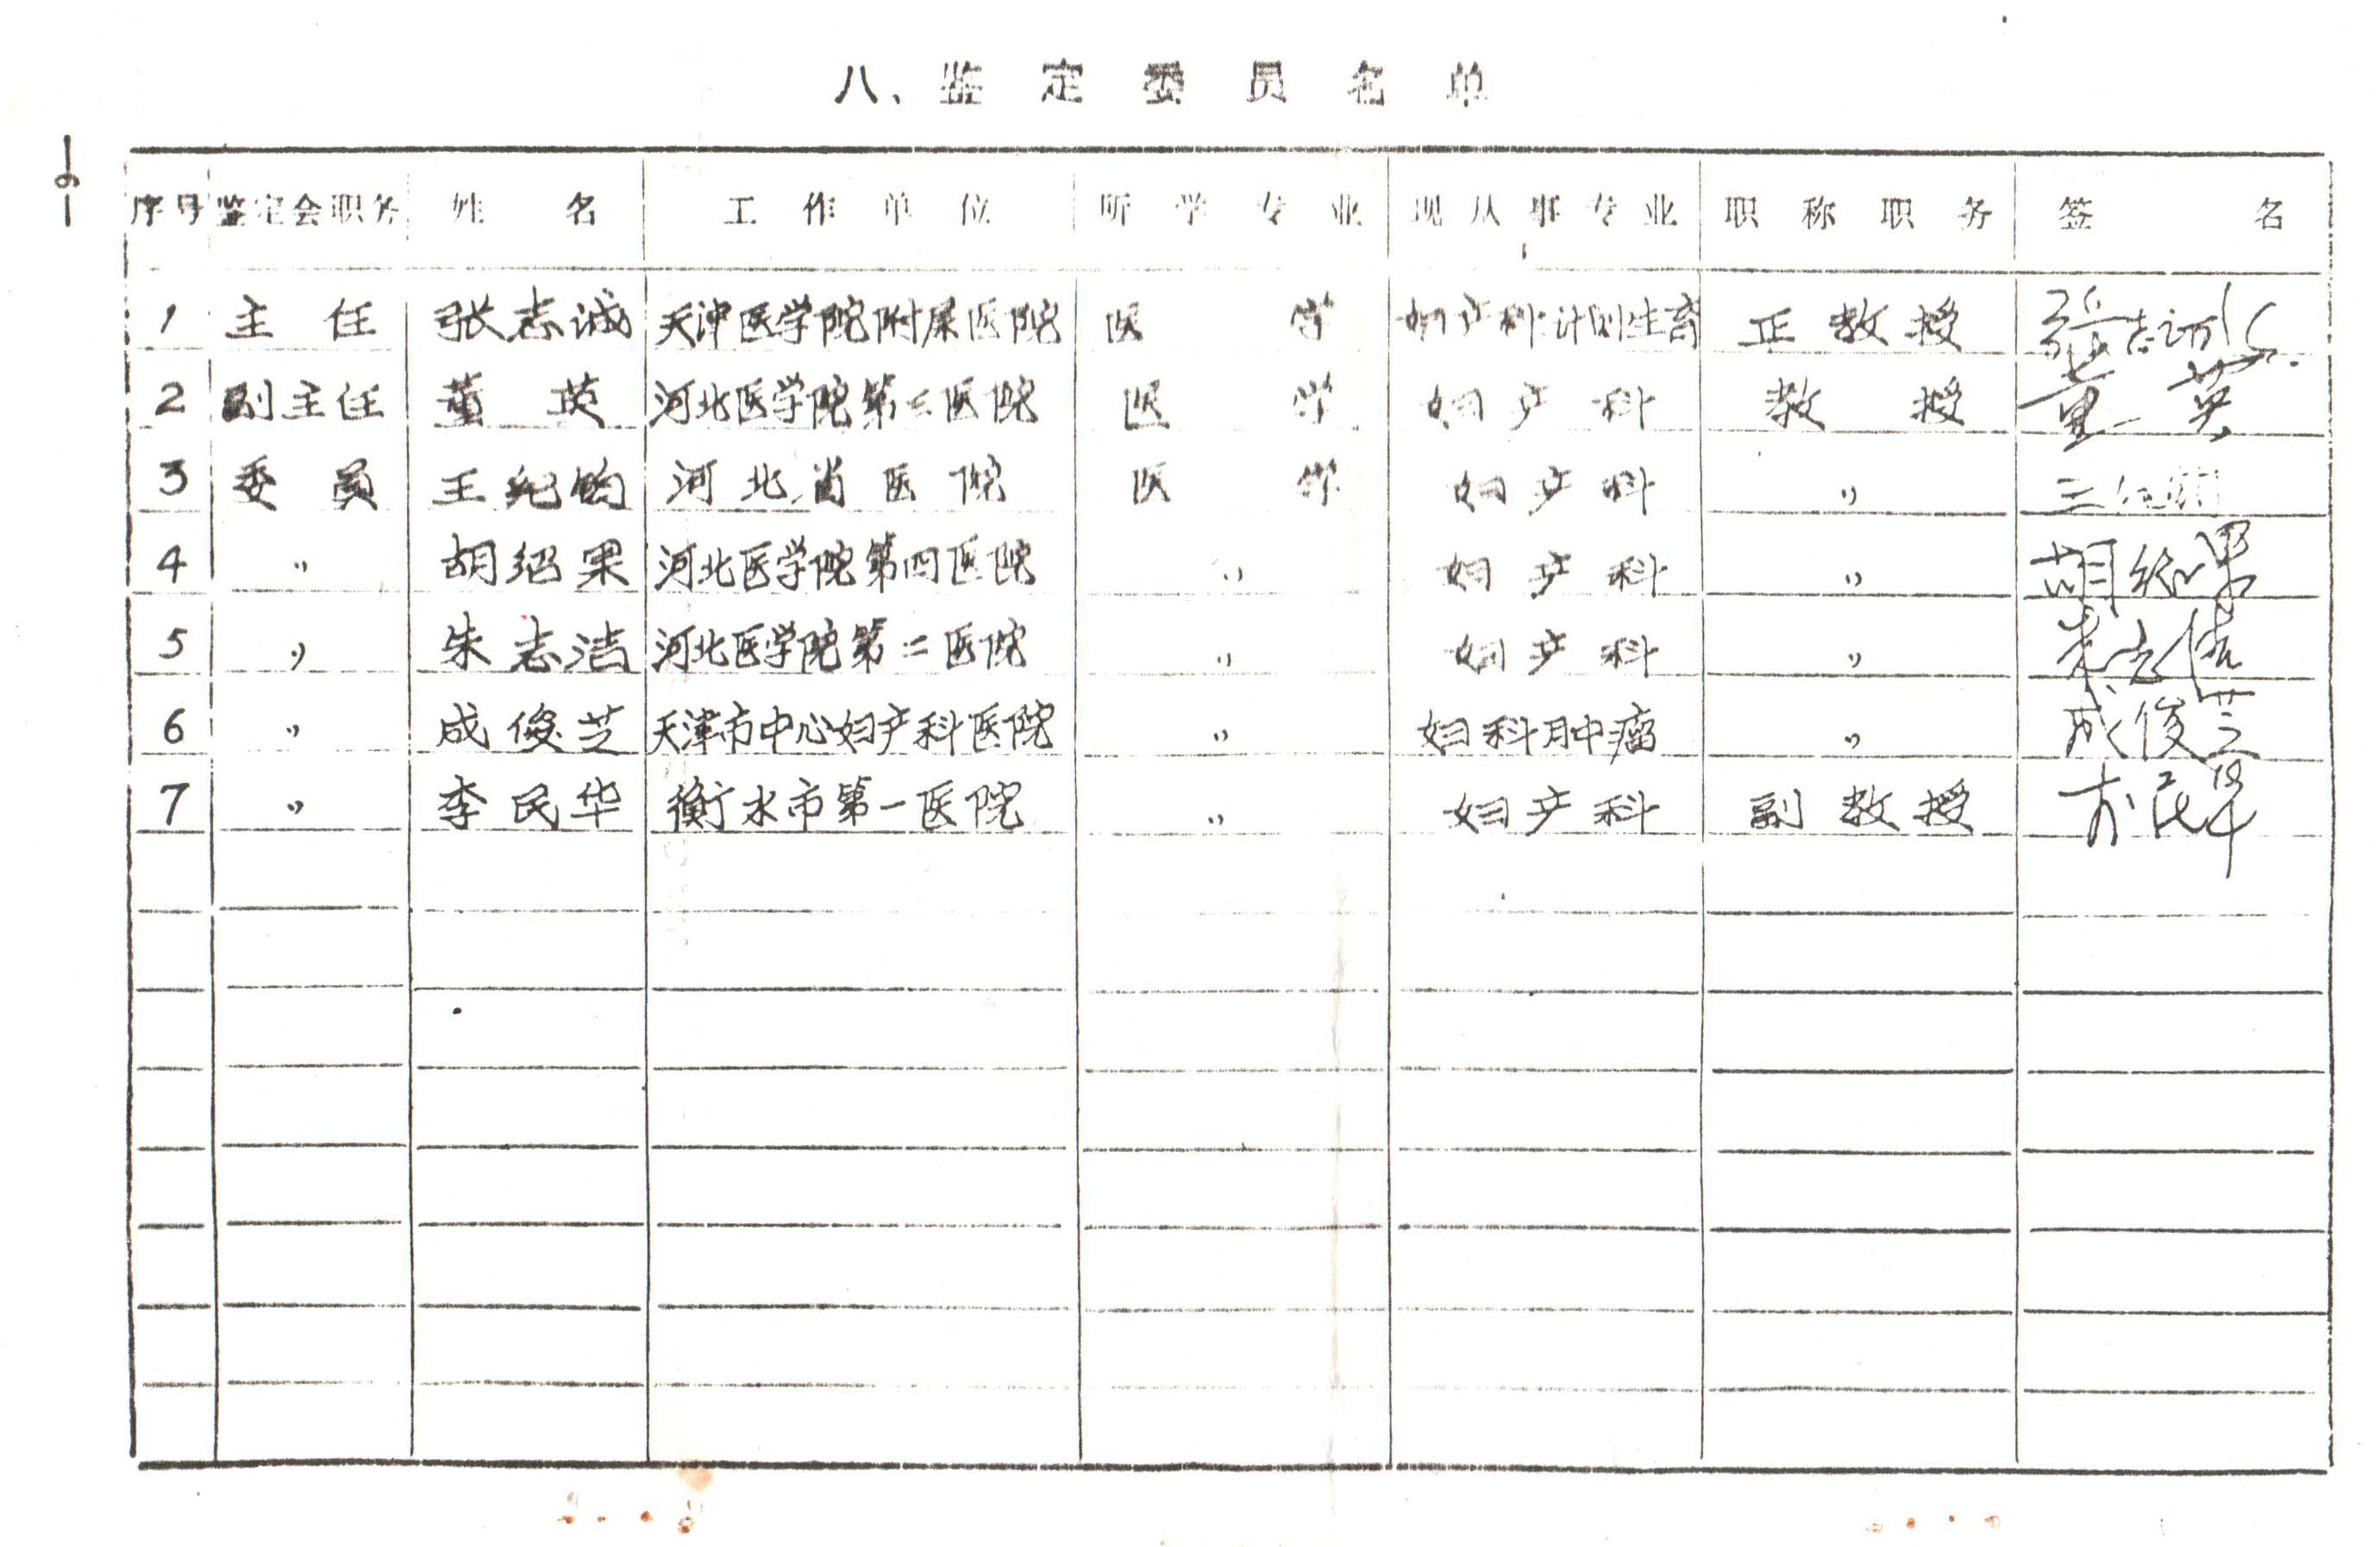 八、鉴定委员名单
序号 鉴定会职务 姓名 工作单位 所学专业 现从事专业 职称职务 签名
1 主任 张志诚 天津医学院附属医院 医学 妇产科计划生育 正教授 張志诚
2 副主任 董英 河北医学院第二医院 医学 妇产科 教授 董英
3 委员 王纪钧 河北省医院 医学 妇产科 〃
4 〃 胡绍果 河北医学院第四医院 〃 妇产科 〃 胡绍果
5 〃 朱志洁 河北医学院第二医院 〃 妇产科 〃 朱志洁
6 〃 成俊芝 天津市中心妇产科医院 〃 妇科肿瘤 〃 成俊芝
7 〃 李民华 衡水市第一医院 〃 妇产科 副教授 李民华